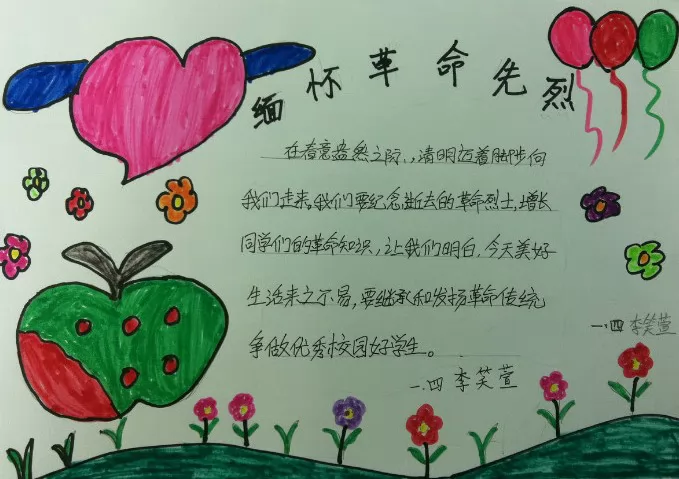 缅怀革命先烈
在春意盎然之际,清明迈着脚步向
我们走来,我们要纪念逝去的革命烈士,增长
同学们的革命知识,让我们明白,今天美好
生活来之不易,要继承和发扬革命传统
争做优秀校园好学生。
一.四 李笑萱
一.四 李笑萱